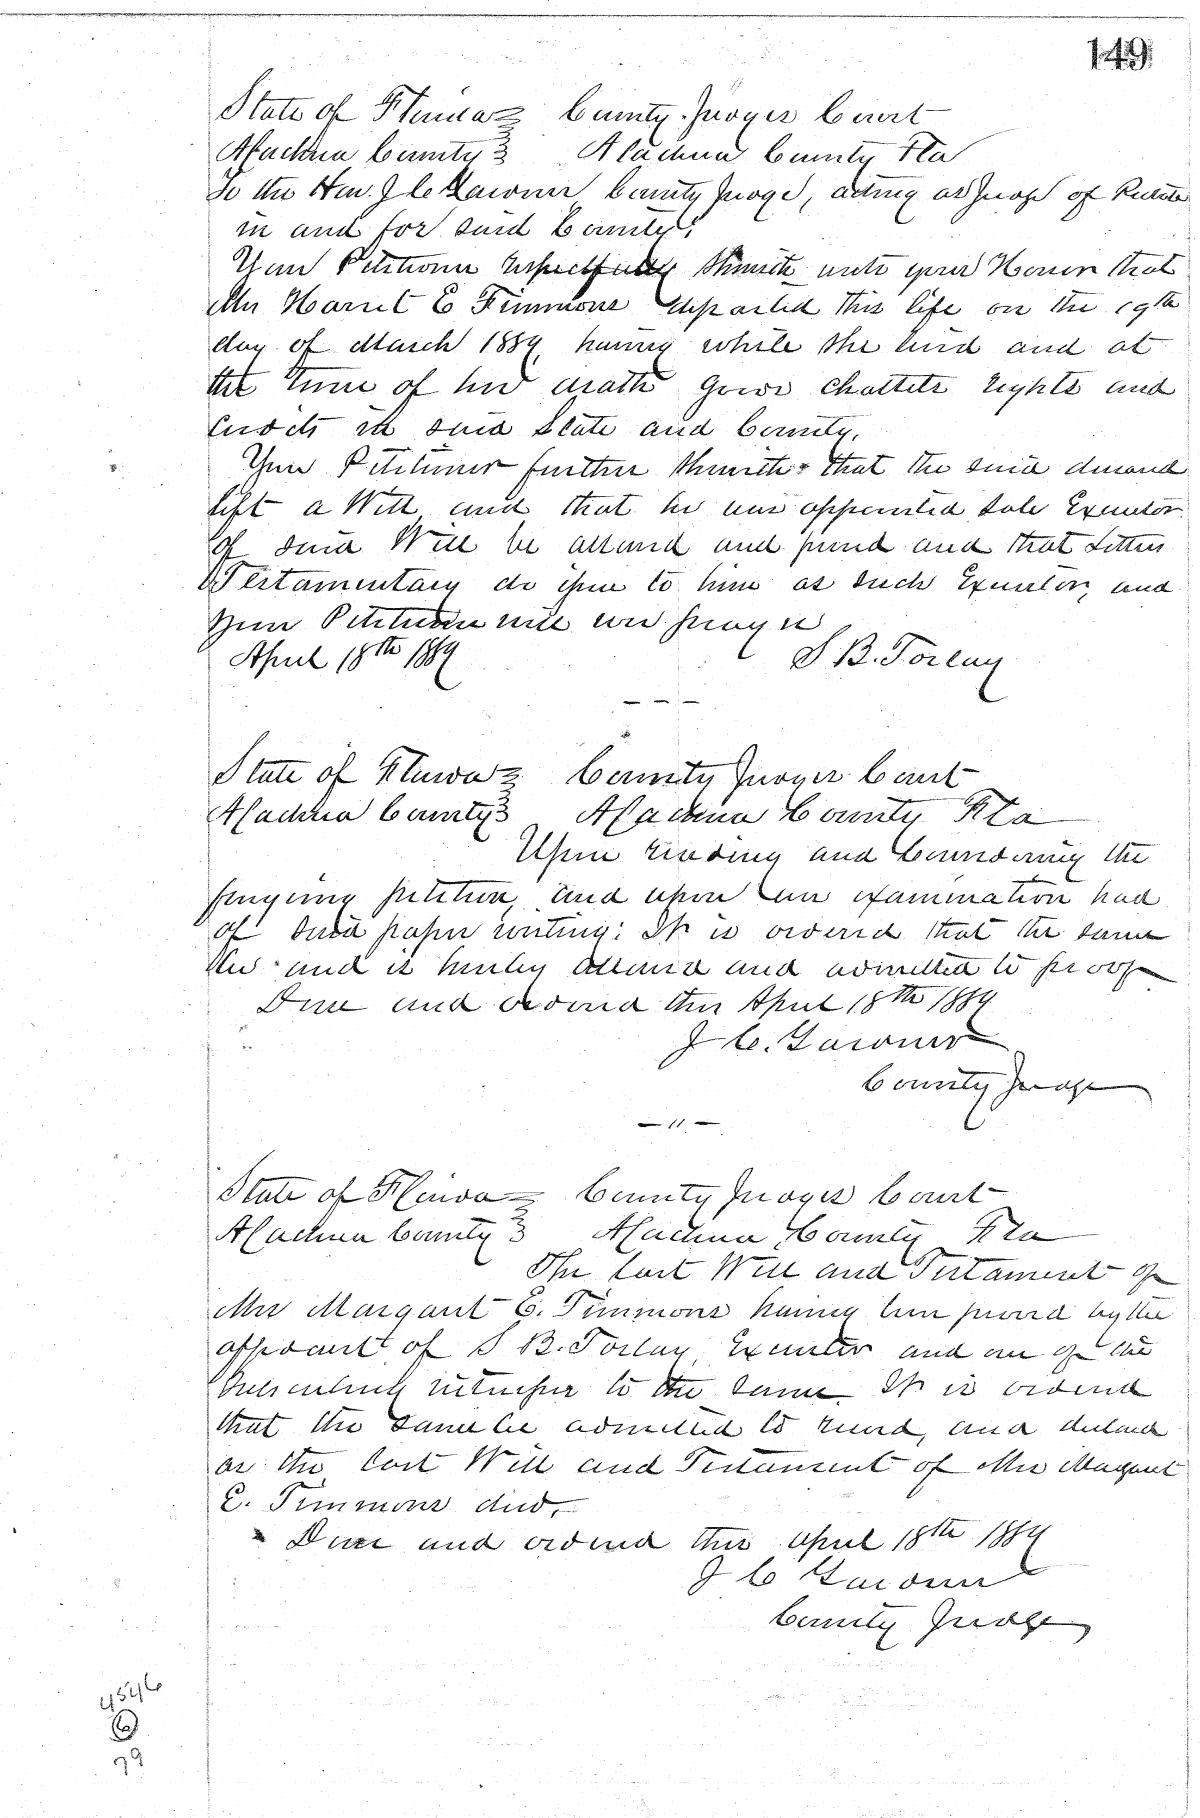 149
State of Florida } County Judges Court
Alachua County } Alachua County Fla
To the Hon. J C Gardner County Judge, acting as Judge of Probate
in and for said County:
Your Petitioner respectfully Showeth unto your Honor that
Mrs Harriet E Timmons departed this life on the 19th
day of March 1889, having while she lived and at
the time of her death Goods Chattels rights and
Credits in said State and County.
Your Petitioner further Showeth that the said deceased
left a Will and that he was appointed Sole Executor
of said Will be allowed and proved and that Letters
Testamentary do issue to him as such Executor, and
Your Petitioner will ever pray &c
April 18th 1889 S B. Torlay
State of Florida } County Judges Court
Alachua County } Alachua County Fla
Upon reading and Considering the
foregoing petition, and upon an examination had
of said paper writing: It is ordered that the same
be and is hereby allowed and admitted to proof
Done and ordered this April 18th 1889
J C. Gardner
County Judge
— " —
State of Florida } County Judges Court
Alachua County } Alachua County Fla
The Last Will and Testament of
Mrs Margaret E. Timmons having been proved by the
affidavit of S B. Torlay, Executor and one of the
Subscribing witnesses to the same. It is ordered
that the same be admitted to record, and declared
as the Last Will and Testament of Mrs Margaret
E. Timmons decd.
Done and ordered this April 18th 1889
J C Gardner
County Judge
4546
6
79